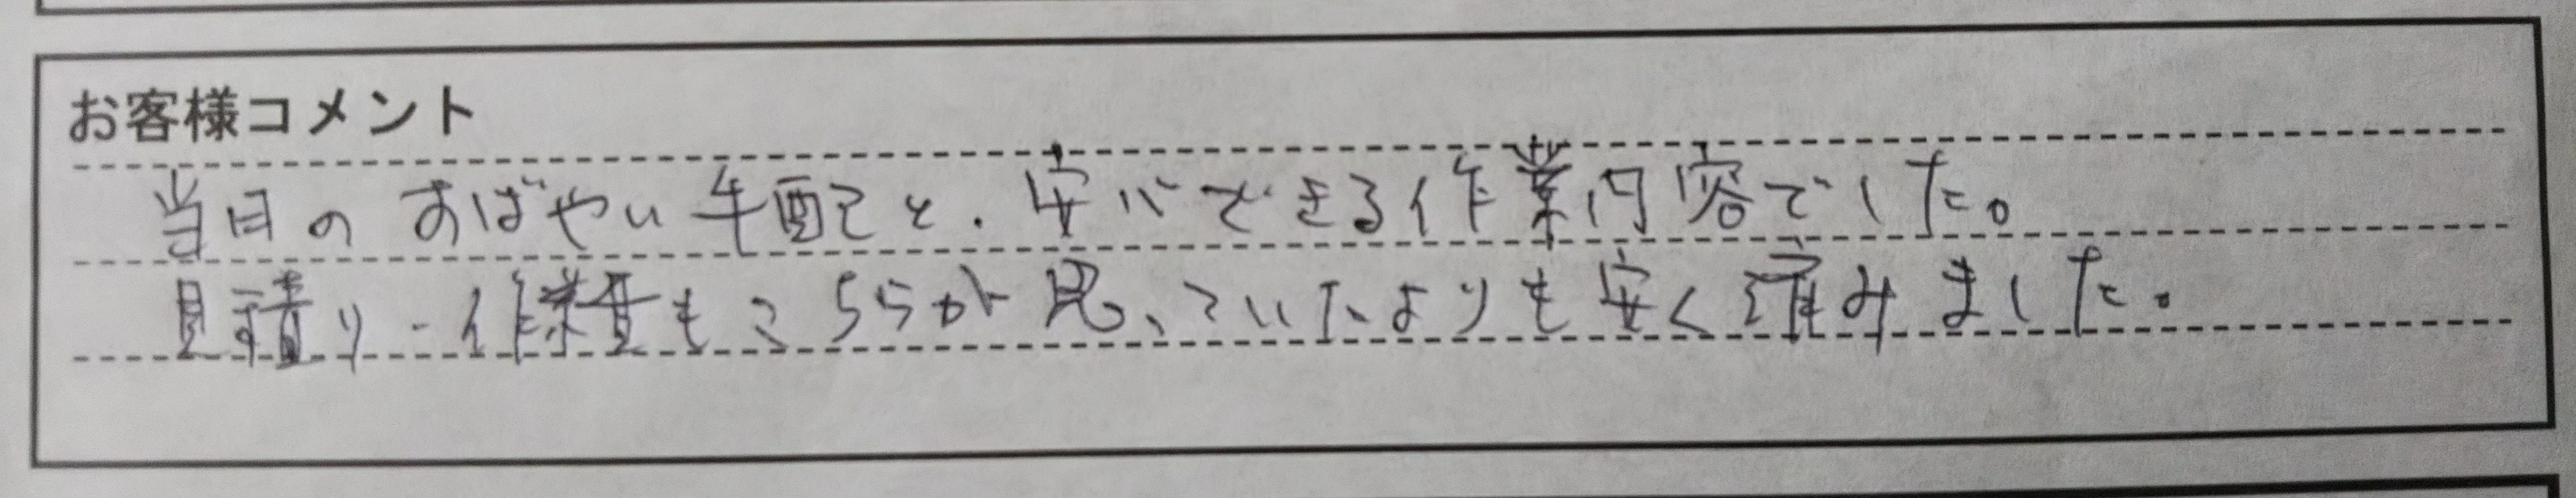 お客様コメント
当日のすばやい手配と、安心できる作業内容でした。
見積り・作業費もこちらが思っていたよりも安く済みました。